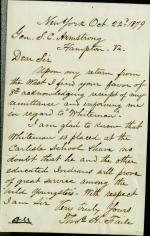 New York Oct 22d 1879
Gen. S. C. Armstrong
Hampton. Va.
Dear Sir
Upon my return from
the West I find your favor of
8th acknowledging receipt of my
remittance and informing me
in regard to Whiteman.
I am glad to know that
Whiteman is placed at the
Carlisle School. I have no
doubt that he and the other
educated Indians will prove
of great service among the
wild youngsters. With respect
I am Sir Very Truly Yours